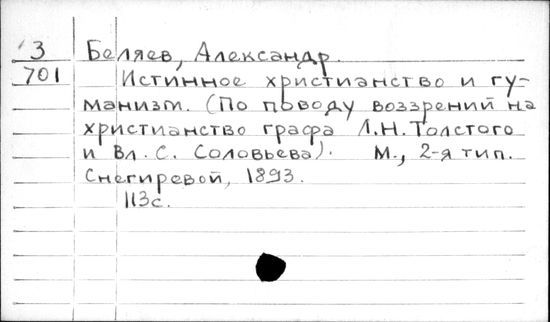 3 Беляев, Александр.
701 Истинное христианство и гу-
манизм. (По поводу воззрений на
христианство графа Л.Н.Толстого
и Вл. С. Соловьева). М., 2-я тип.
Снегиревой, 1893.
113с.